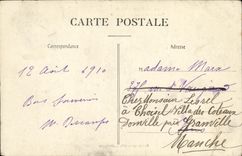 CARTE POSTALE
Correspondance
Adresse
12 Août 1910
Bon Souvenir
M. Descamps
Madame Marx
Chez Monsieur Lebrel
à Choisel Villa des Coteaux
Donville près Granville
Manche